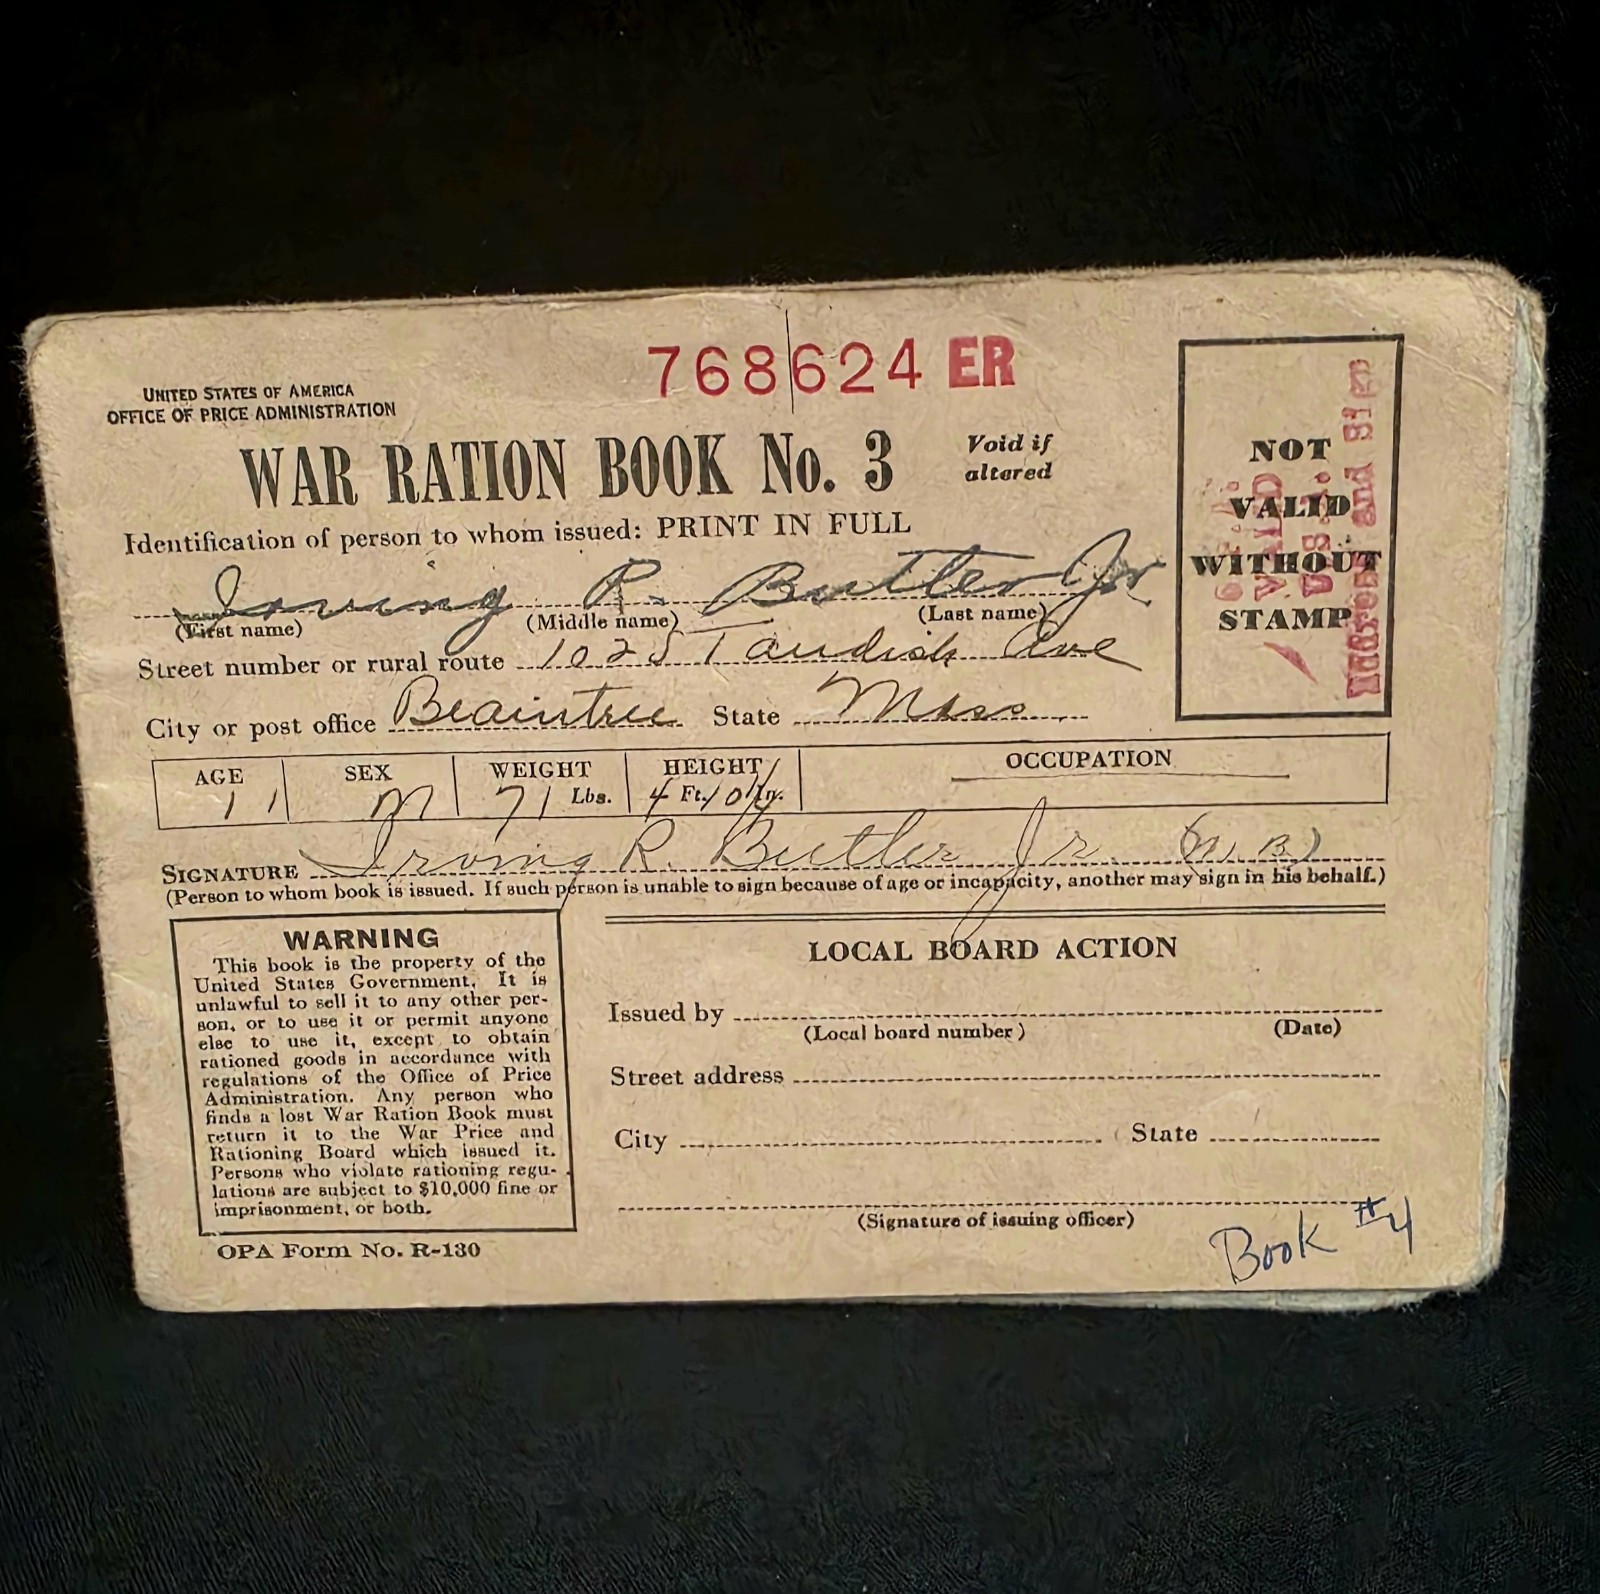 768624 ER
UNITED STATES OF AMERICA
OFFICE OF PRICE ADMINISTRATION
WAR RATION BOOK No. 3
Void if
altered
Identification of person to whom issued: PRINT IN FULL
Irving R. Butler Jr
(First name) (Middle name) (Last name)
Street number or rural route 1025 Tandish Ave
City or post office Braintree State Mass
AGE SEX WEIGHT HEIGHT OCCUPATION
11 M 71 Lbs. 4 Ft. 10 In.
SIGNATURE Irving R. Butler Jr.
(Person to whom book is issued. If such person is unable to sign because of age or incapacity, another may sign in his behalf.)
NOT
VALID
WITHOUT
STAMP
VALID
and Sign
WARNING
This book is the property of the
United States Government. It is
unlawful to sell it to any other per-
son, or to use it or permit anyone
else to use it, except to obtain
rationed goods in accordance with
regulations of the Office of Price
Administration. Any person who
finds a lost War Ration Book must
return it to the War Price and
Rationing Board which issued it.
Persons who violate rationing regu-
lations are subject to $10,000 fine or
imprisonment, or both.
OPA Form No. R-130
LOCAL BOARD ACTION
Issued by
(Local board number) (Date)
Street address
City State
(Signature of issuing officer)
Book #4